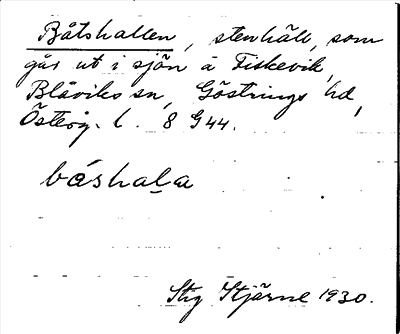 Båtshallen, stenhäll, som
går ut i sjön å Fiskevik,
Blåviks sn, Göstrings hd,
Österg. l. 8 G 44.
båshala
Stig Stjärne 1930.